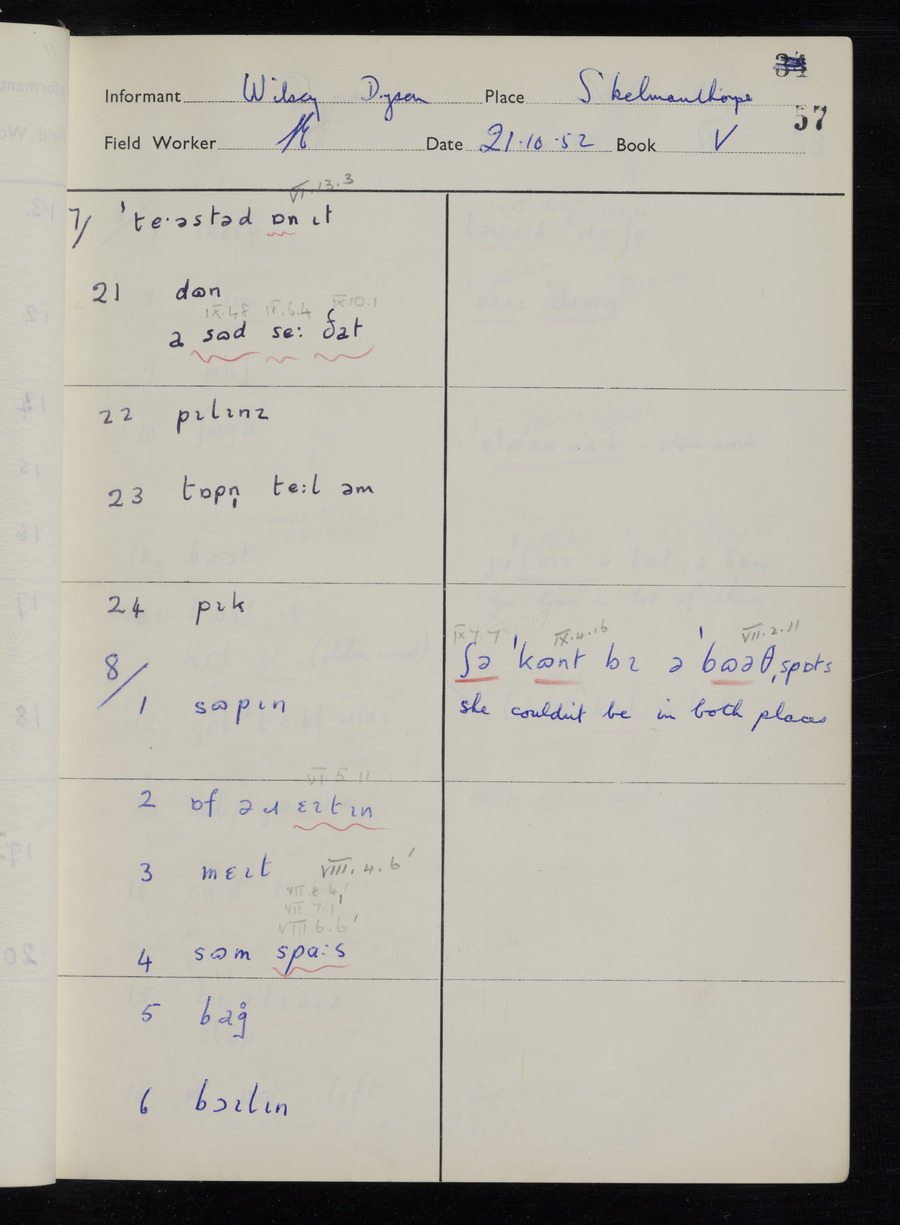 34
57
Informant Wilsey Dyson Place Skelmanthorpe
Field Worker Date 21.10.52 Book V
VI.13.3
7/ ˈteˑəstəd ɒn ɪt
21 dɷn
IX.4.8 VI.6.4 IX.10.1
a sɷd seː ðat
22 pɪlɪnz
23 tɒpn̩ teːl əm
24 pɪk
8/
1 sɷpɪn
IX.7.7 IX.4.16 VII.2.11
ʃə ˈkɷnt bɪ ə ˈbɷəθ ˌspɒts
she couldn't be in both places
VI.5.11
2 ɒf əɹ ɛɪtɪn
3 mɛɪt VIII.4.6'
VII.8.4'
VII.7.1'
VIII.6.6'
4 sɷm spaːs
5 bag̊
6 bɔɪlɪn